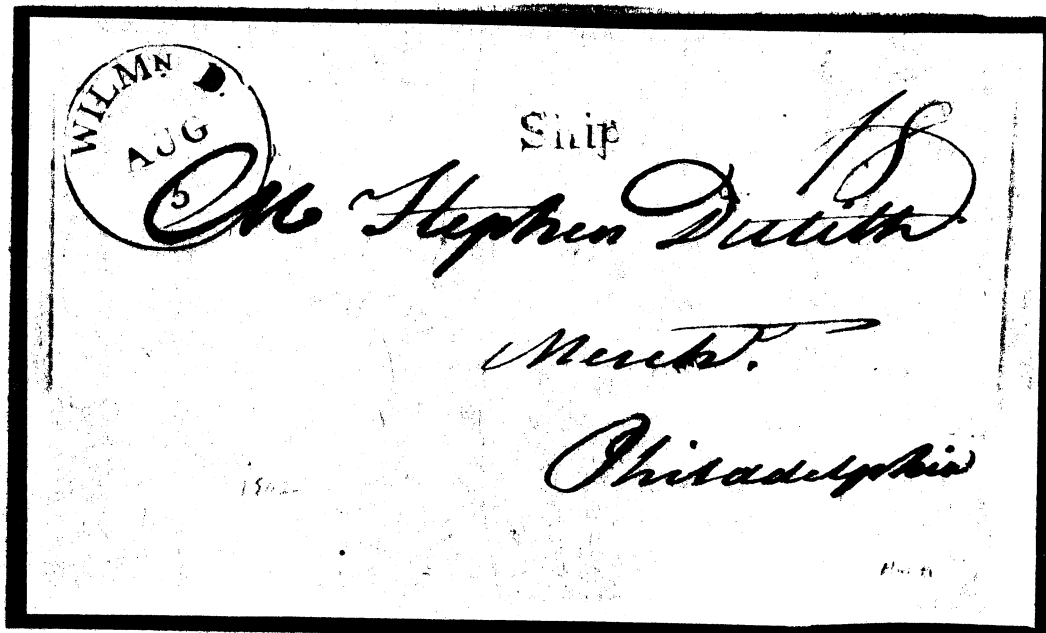 WILMN D.
AUG
5
Ship
18
Mr Stephen Dutilth
Mercht.
Philadelphia